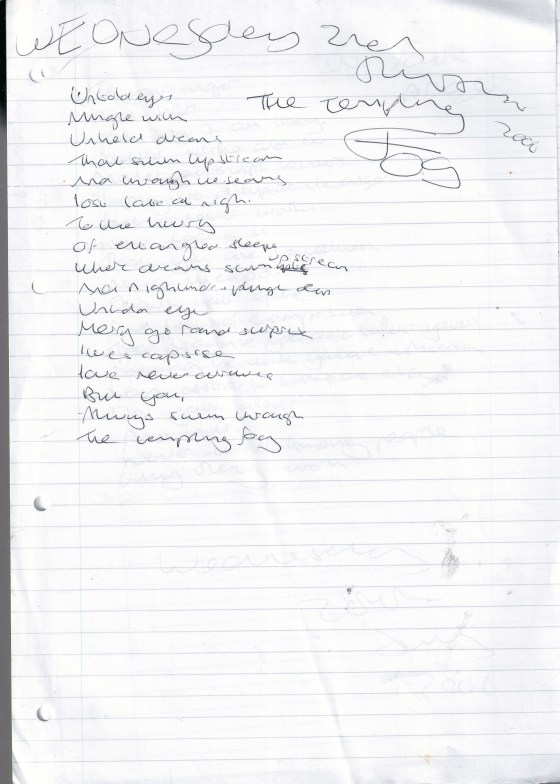 WEDNesday 21st
2006
The Tempting
Fog
Untold eyes
Mingle with
Unheld dreams
That swim upstream
And through the seams
lost late at night.
To the hurry
Of entangled sleep
Where dreams swim upstream
And nightmares plunge deep
Untold eye
Merry go round surprise
lives capsise
love never
But you,
Always swim through
The tempting fog